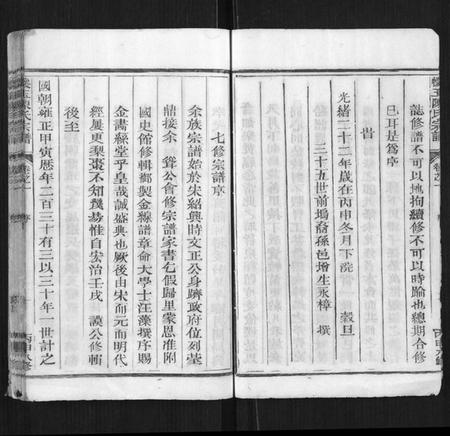 誌修譜不可以地拘續修不可以時踰也總期合修
巳耳是為序
旹
光緒二十二年歲在丙申冬月下浣　穀旦
三十五世前塢裔孫邑增生永樟　撰
七修宗譜序
余族宗譜始於宋紹興時文正公身躋政府位列臺
鼎接示　聳公會修宗譜家書乞假歸里蒙恩准附
國史館修輯御製金縢譜章命大學士汪藻撰序賜
金書綵堂乎皇哉誠盛典也厥後由宋而元而明代
經屢更梨棗不知幾易惟自宏治壬戌　護公修輯
後至
國朝雍正甲寅歷年二百三十有三以三十年一世計之